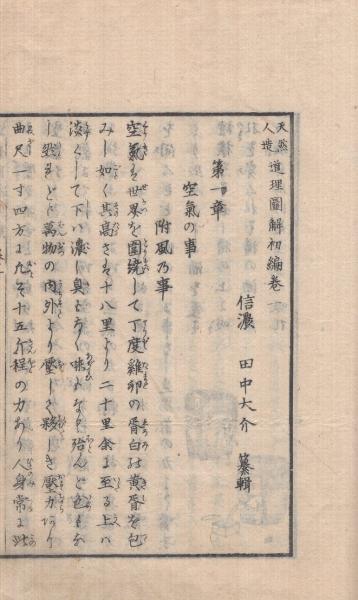 天然人造 道理圖解初編巻一
信濃 田中大介 纂輯
第一章
空氣の事
附風乃事
空氣は世界を圍繞して丁度雞卵の蛋白の黄蛋を包
みし如く其高さ十八里より二十里余に至る上ハ
淡くして下ハ濃し臭もなく味もなく殆んど色もな
し然れども萬物の内外より壓して夥しき壓力あり
曲尺一寸四方に九そ十五斤程の力あり人身常に此